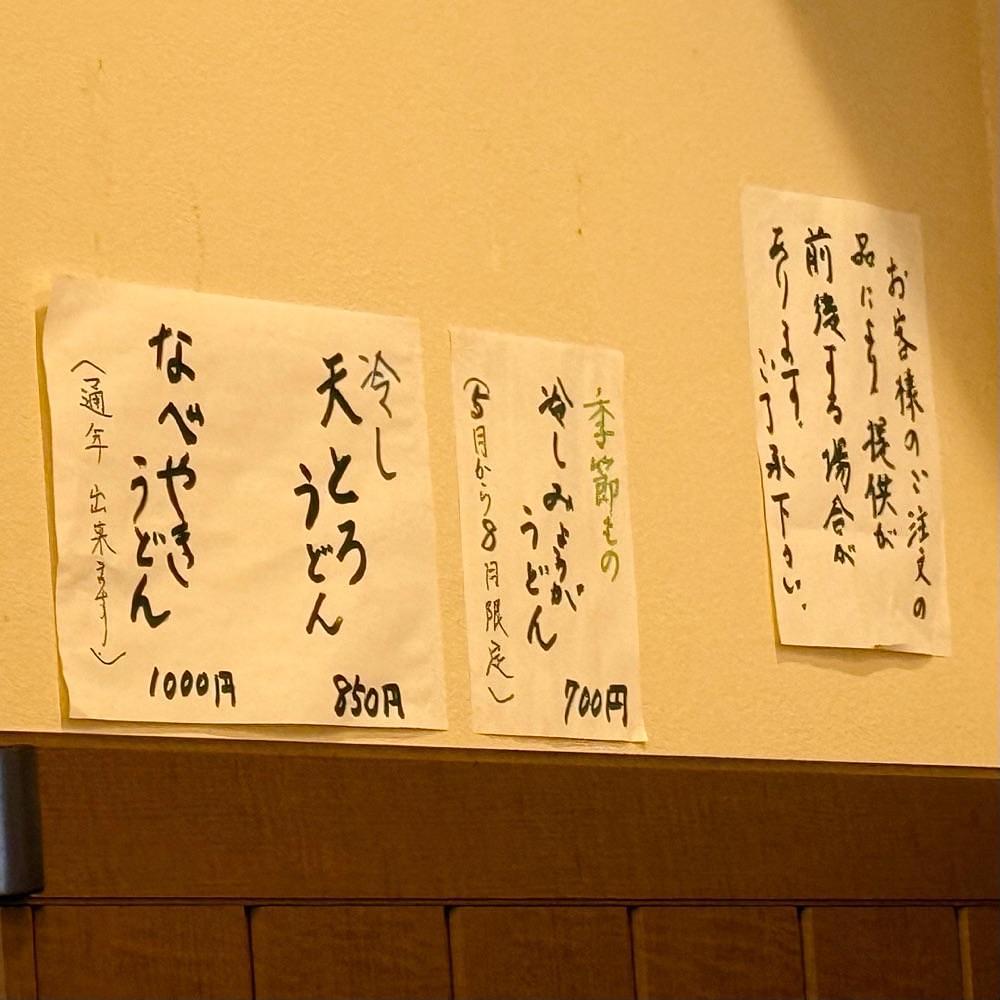 お客様のご注文の
品により提供が
前後する場合が
あります。
ご了承下さい。
季節もの
冷しみょうが
うどん
(5月から8月限定)
700円
冷し
天とろ
うどん
850円
なべやき
うどん
(通年出来ます)
1000円